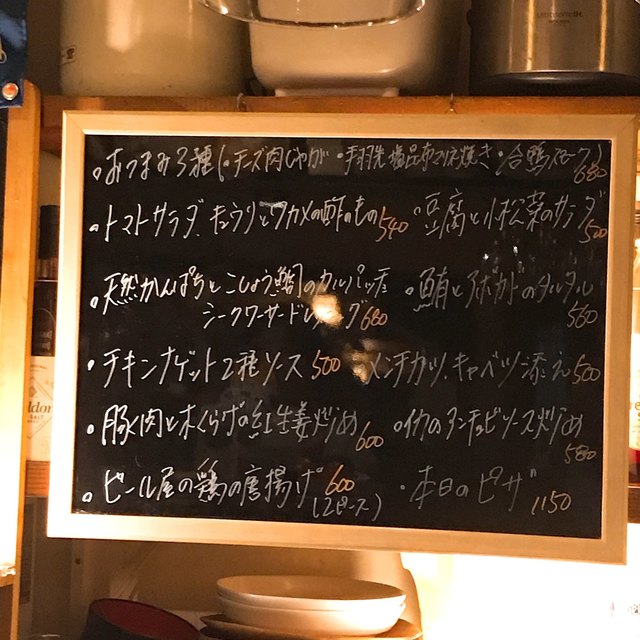 ・おつまみ3種(・チーズ肉じゃが・手羽先塩昆布マリネ焼き・合鴨スモーク) 680
・トマトサラダ.キュウリとワカメの酢のもの 540 ・豆腐と小松菜のサラダ 500
・天然かんぱちとこしょう鯛のカルパッチョ
シークワーサードレッシング 680
・鮪とアボカドのタルタル
560
・チキンナゲット2種ソース 500 メンチカツ.キャベツ添え 500
・豚肉と木くらげの紅生姜炒め 600 ・イカのアンチョビソース炒め
580
・ビール屋の鶏の唐揚げ 600
(2ピース)
・本日のピザ 1150